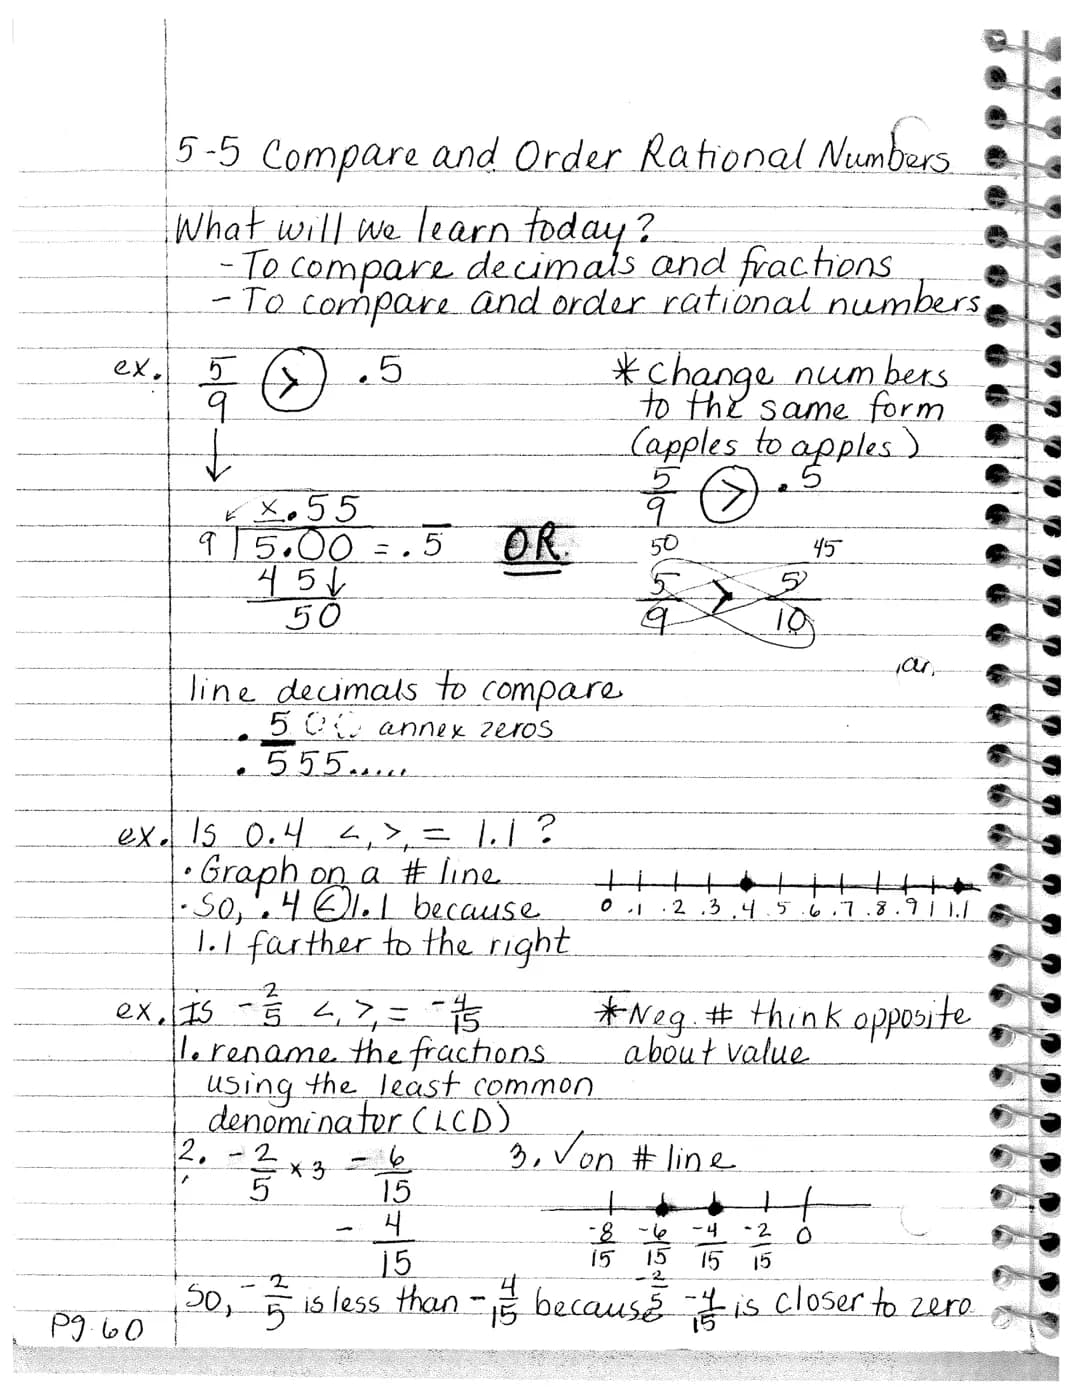 5-5 Compare and Order Rational Numbers
What will we learn today?
- To compare decimals and fractions
- To compare and order rational numbers
ex. 5/9 > .5
* Change numbers
to the same form
(apples to apples)
5/9 > .5
x.55
9 5.00 = .5̅
45
50
OR
50 45
5/9 > 5/10
line decimals to compare
.500 annex zeros
.555.....
ex. Is 0.4 <, >, = 1.1?
• Graph on a # line
• So, .4 < 1.1 because
1.1 farther to the right
0 .1 .2 .3 .4 .5 .6 .7 .8 .9 1 1.1
ex. Is -2/5 <, >, = -4/15
* Neg. # think opposite
about value
1. rename the fractions
using the least common
denominator (LCD)
2. -2/5 x 3 -6/15
-4/15
3. √ on # line
-8/15 -6/15 -4/15 -2/15 0
So, -2/5 is less than -4/15 because -4/15 is closer to zero
-2/5
Pg. 60